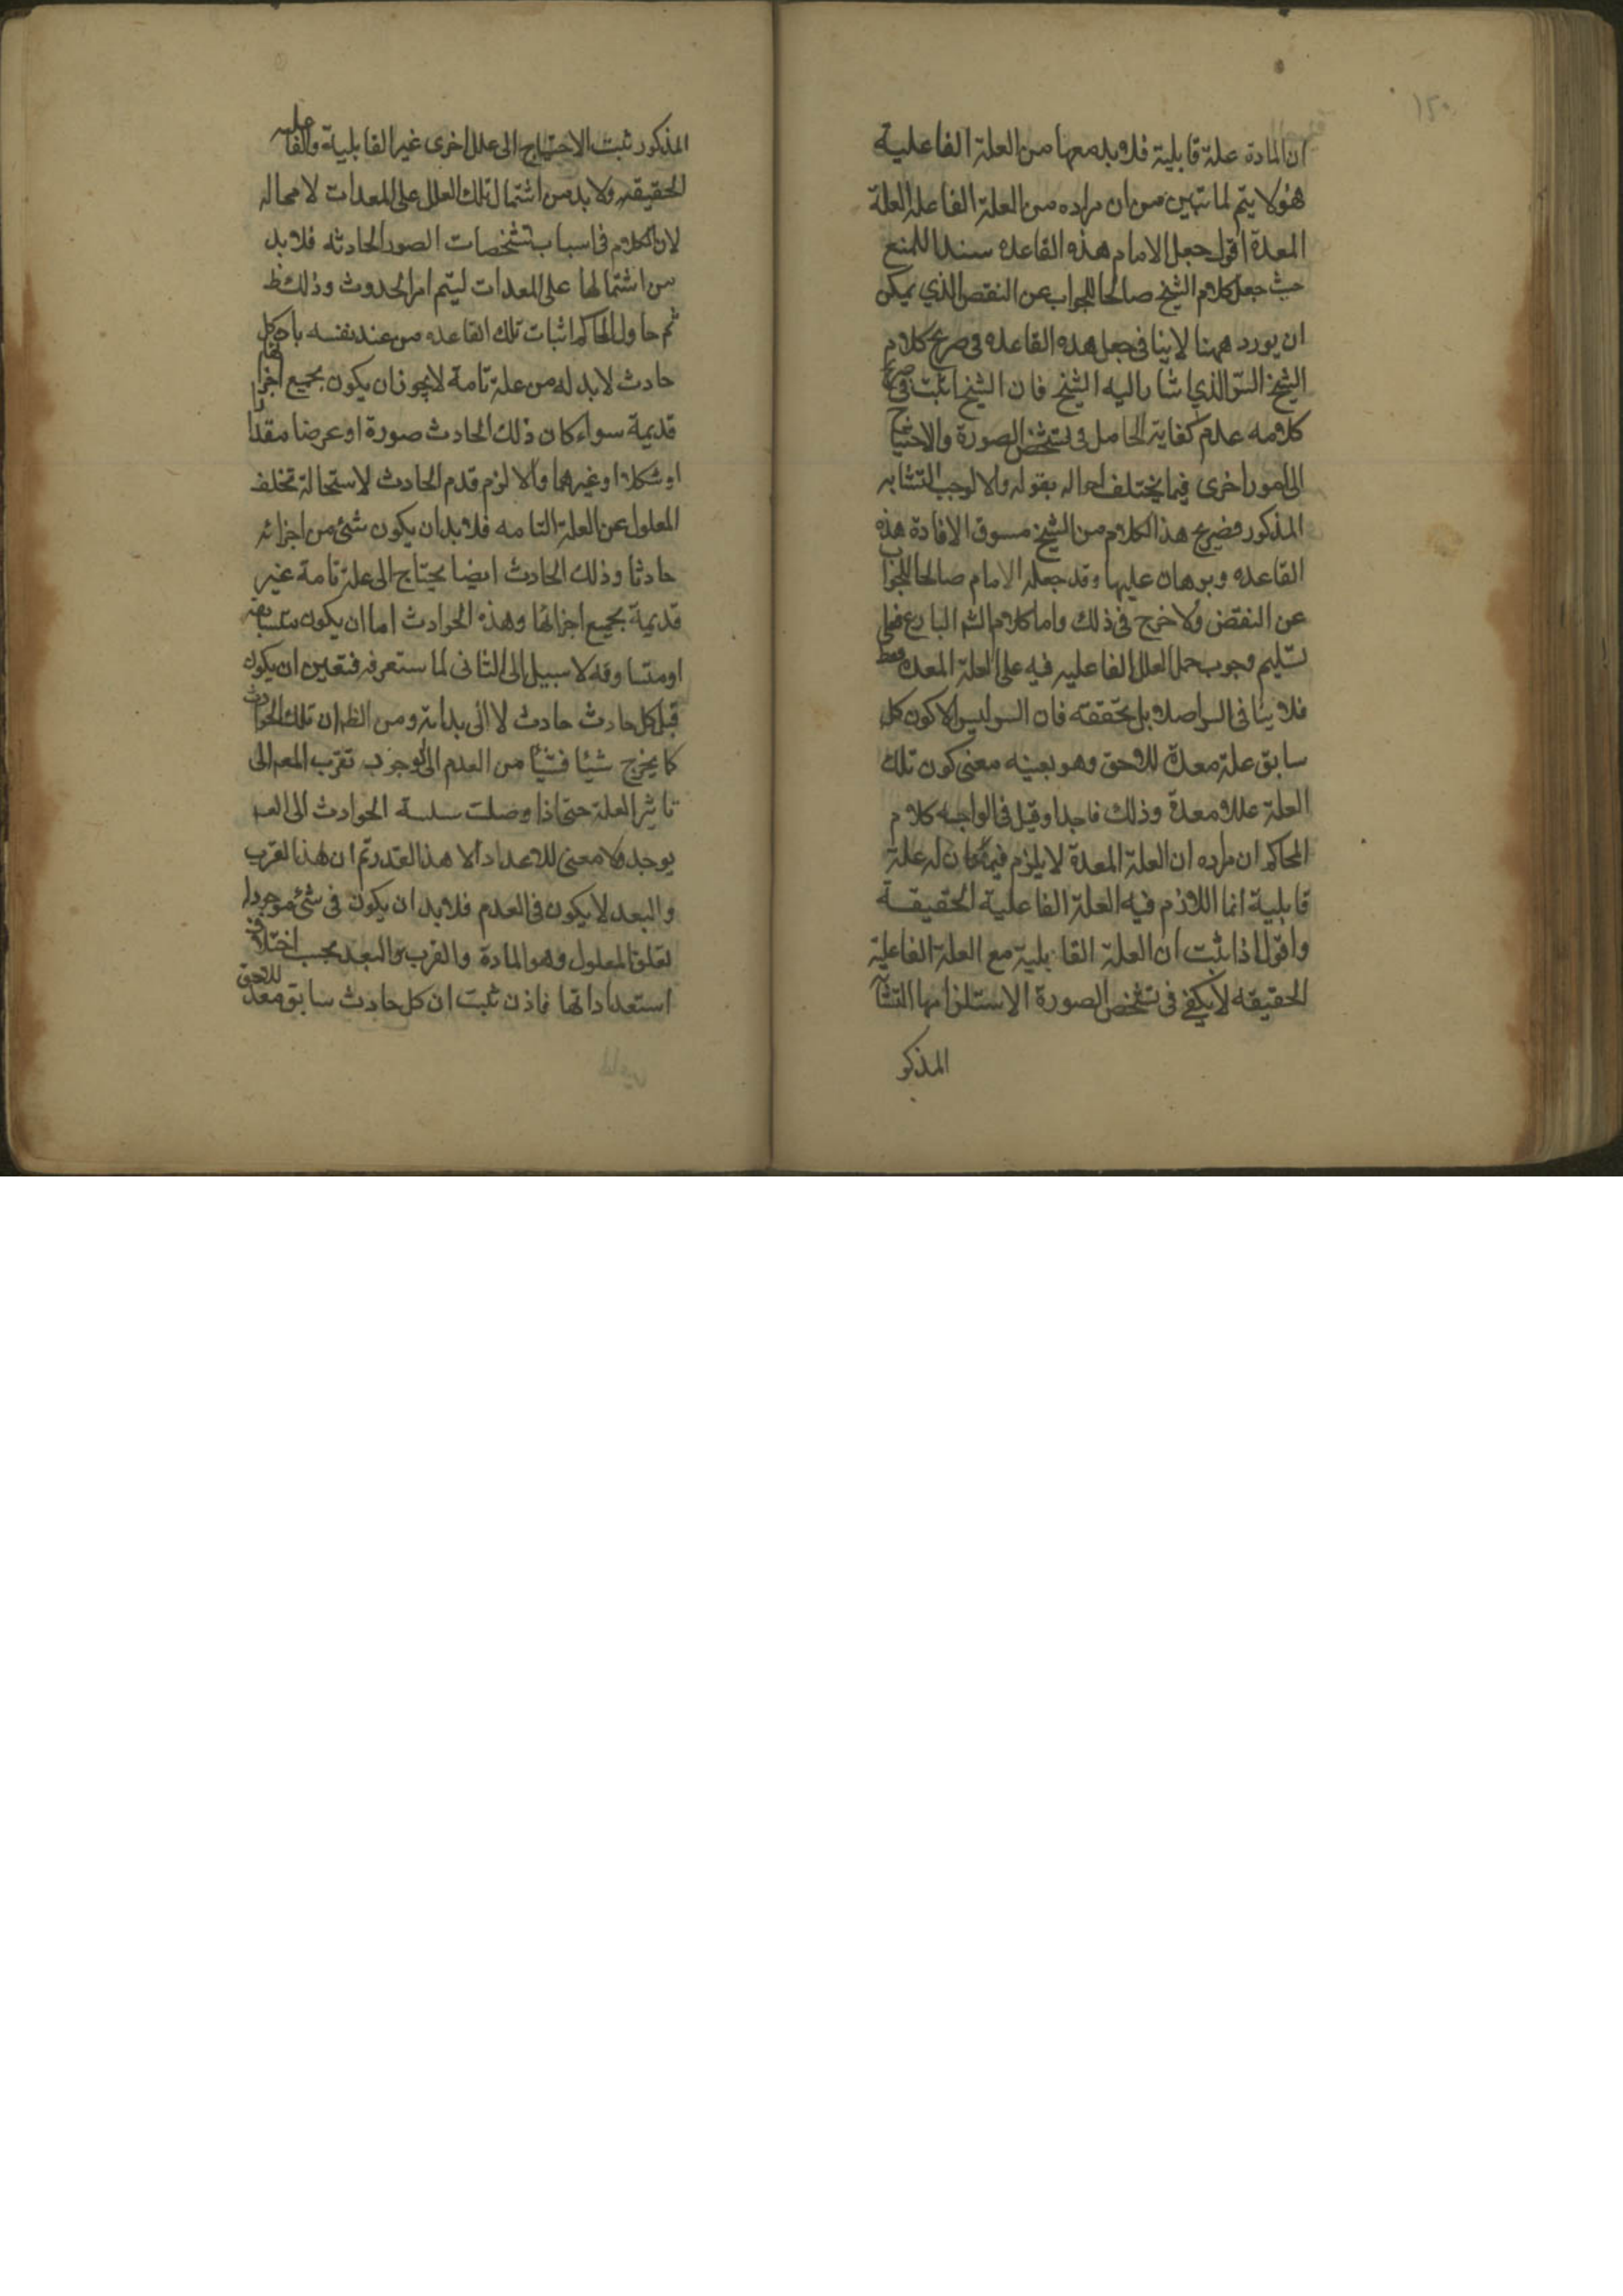 ١٥٠
ان المادة علة قابلية فلابد معها من العلة الفاعلية
فهو لا يتم لما تبين من ان مراده من العلة الفاعلة العلة
المعدة اقول جعل الامام هذه القاعده سندا للمنع
حيث جعل كلام الشيخ صالحا للجواب عن النقض الذي يمكن
ان يورد ههنا لا ينافى جعل هذه القاعده فى صريح كلام
الشيخ السر الذي اشار اليه الشيخ فان الشيخ اثبت فى صريح
كلامه عدم كفاية الحامل فى تشخص الصورة والاحتياج
الى امور اخرى فيما يختلف احواله بقوله والا لوجب التشابه
المذكور فصريح هذا الكلام من الشيخ مسوق الافادة هذه
القاعده وبرهان عليها وقد جعله الامام صالحا للجواب
عن النقض ولا حرج فى ذلك واما كلام الشه البارع فعلى
تسليم وجوب حمل العلل الفاعليه فيه على العلة المعده فقط
فلا ينافى السر اصلا بل يحققه فان السر ليس الا كون كل
سابق علة معدة للاحق وهو بعينه معنى كون تلك
العلة عللا معدة وذلك فاجدا وقيل فى الواجبه كلام
المحاكم ان مراده ان العلة المعدة لا يلزم فيما كان له علة
قابلية انما اللازم فيه العلة الفاعلية الحقيقية
واقول اذا ثبت ان العلة القابلية مع العلة الفاعلية
الحقيقه لا يكفى فى تشخص الصورة الاستلزامها التشا
المذكو
المذكور ثبت الاحتياج الى علل اخرى غير القابلية والفاعليه
الحقيقه ولابد من اشتمال تلك العلل على المعدات لا محاله
لان الكلام فى اسباب تشخصات الصور الحادثه فلابد
من اشتمالها على المعدات ليتم امر الحدوث وذلك ظ
ثم حاول المحاكم اثبات تلك القاعده من عند نفسه بان كل
حادث لابد له من علة تامة لا يجوز ان يكون بجميع اجزائها
قديمة سواء كان ذلك الحادث صورة او عرضا مقدارا
او شكلا او غيرهما والا لزم قدم الحادث لاستحالة تخلف
المعلول عن العلة التامه فلابد ان يكون شئ من اجزائه
حادثا وذلك الحادث ايضا يحتاج الى علة تامة غير
قديمة بجميع اجزائها وهذه الحوادث اما ان يكون متسابقه
او متساوقه لا سبيل الى الثانى لما ستعرفه فتعين ان يكون
قبل كل حادث حادث لا الى بداية ومن الظ ان تلك الحوادث
كما يخرج شيئا فشيئا من العدم الى الوجود تقرب المعم الى
تاثير العلة حتى اذا وصلت سلسة الحوادث الى العد
يوجد ولا معنى للاعداد الا هذا القدر ثم ان هذا القرب
والبعد لا يكون فى العدم فلابد ان يكون فى شئ موجود له
تعلق المعلول وهو المادة والقرب والبعد بحسب اختلاف
استعداداتها فاذن ثبت ان كل حادث سابق معد للاحق